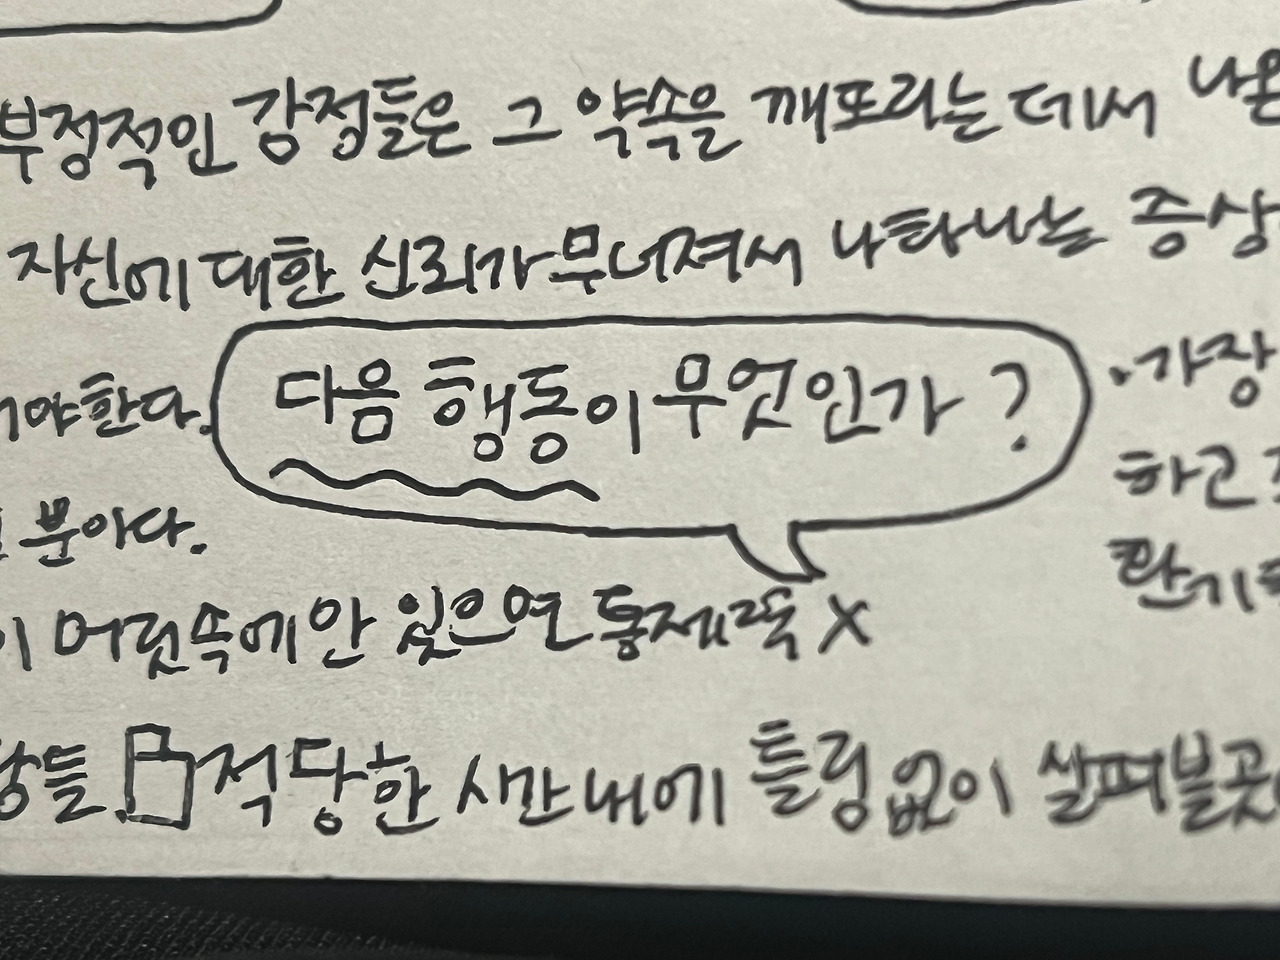 부정적인 감정들은 그 약속을 깨뜨리는 데서 나온
자신에 대한 신뢰가 무너져서 나타나는 증상
야 한다.
다음 행동이 무엇인가?
· 가장
분야다.
하고
머릿속에 안 있으면 통제력 X
환기
적당한 시간 내에 틀림없이 살펴볼 곳